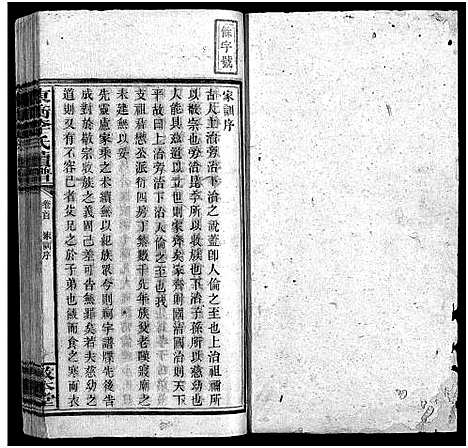 條字號
家訓序
古人上治旁治下治之說蓋即人倫之至也上治祖禰所
以敬宗也旁治昆季所以收族也下治子孫所以慈幼也
人能具此慈遺以立則家齊矣家齊則國治國治則天下
平故同上治旁治下治人倫之至也我
支祖資懋公派衍四房丁繁數千先年族叟老陳巖廟之
未建無以妥
先靈慮家乘之未續無以紀族眾今則祠宇譜牒先後告
成對於敬宗收族之義固己差可告無罪矣若夫慈幼之
道又不容已者矣兄之於子弟也饑而食之寒而衣
卷首
家訓序